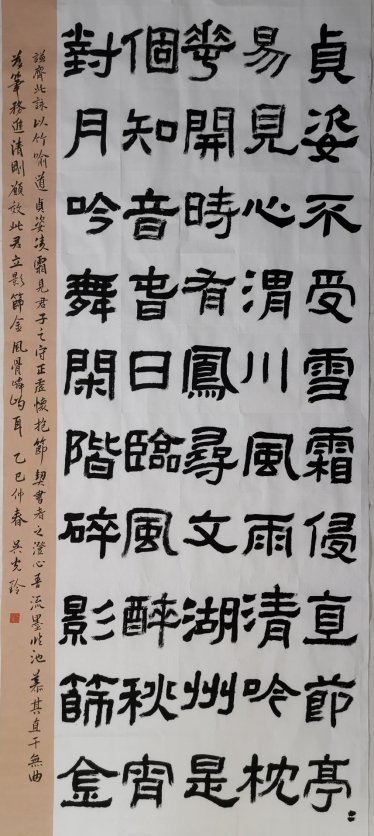 貞姿不受雪霜侵直節亭〻
易見心渭川風雨清吟枕
華開時有鳳尋文湖州是
個知音旾日臨風醉秋宵
對月吟舞閑階碎影篩金
謙齋此詠以竹喻道貞姿凌霜見君子之守正虛懷抱節契書者之澄心流墨臨池慕其直干無曲
落筆務進清剛願效此君立影篩金風骨嶙峋耳 乙巳仲春 吳光玲